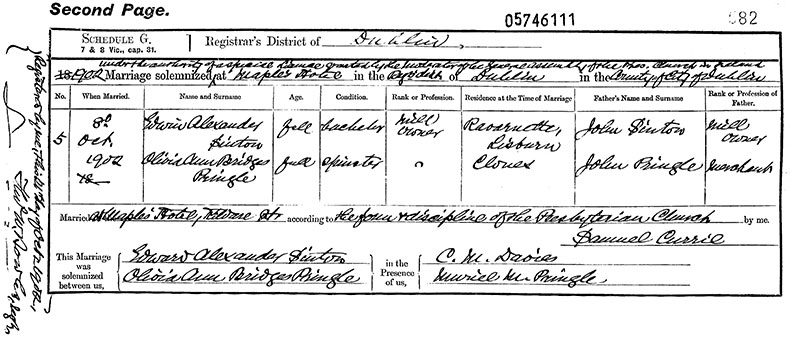 Second Page.
05746111
682
SCHEDULE G.
7 & 8 Vic., cap. 31.
Registrar's District of Dublin,
under the authority of a special license granted by the Moderator of the General Assembly of the Pres. Church in Ireland
18 1902 Marriage solemnized at Maple's Hotel in the of Dublin in the County of City of Dublin
No. When Married. Name and Surname Age. Condition. Rank or Profession. Residence at the Time of Marriage Father's Name and Surname Rank or Profession of Father.
5 8th Oct 1902 18 Edwin Alexander Sinton full bachelor Mill Owner Ravarnette, Lisburn John Sinton Mill Owner
Olivia Ann Bridges Pringle full spinster Clones John Pringle Merchant
Married at Maple's Hotel, Kildare St. according to the form & discipline of the Presbyterian Church by me.
Samuel Currie
This Marriage was solemnized between us,
Edward Alexander Sinton
Olivia Ann Bridges Pringle
in the Presence of us,
C. M. Davies
Muriel M. Pringle
Registered by me, this day of Oct 1902,